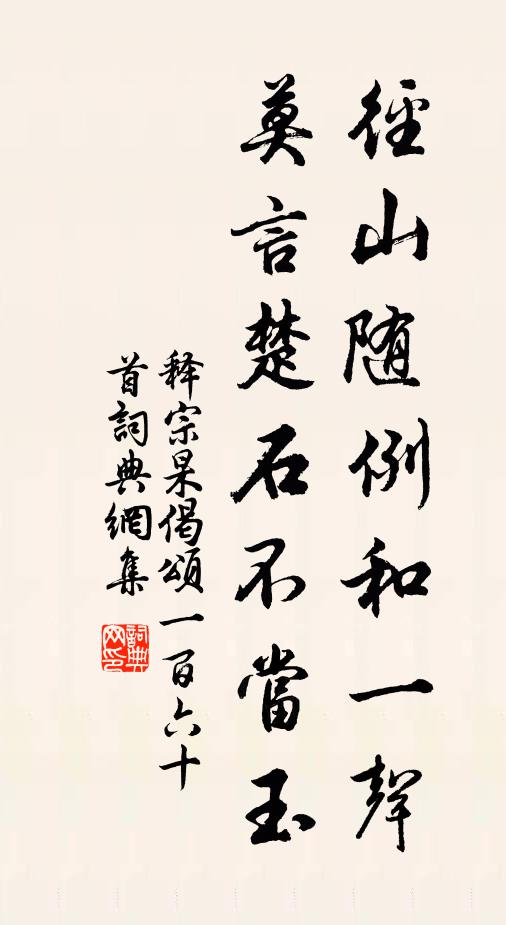 徑山随例和一聲
莫言楚石不當玉
释宗杲偈頌一百六十
首詞典網集
詞典
网印